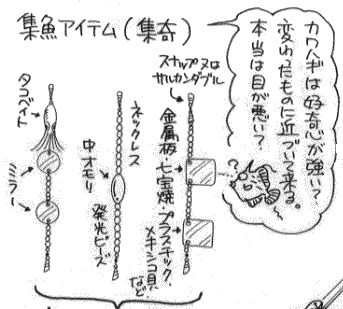 集魚アイテム(集奇)
カワハギは好奇心が強い?
変わったものに近づいて来る。
本当は目が悪い?
?
スナップ又は
サルカンダブル
金属板・七宝焼・プラスチック、
メキシコ貝
など
ネックレス
中オモリ
発光ビーズ
タコベイト
ミラー